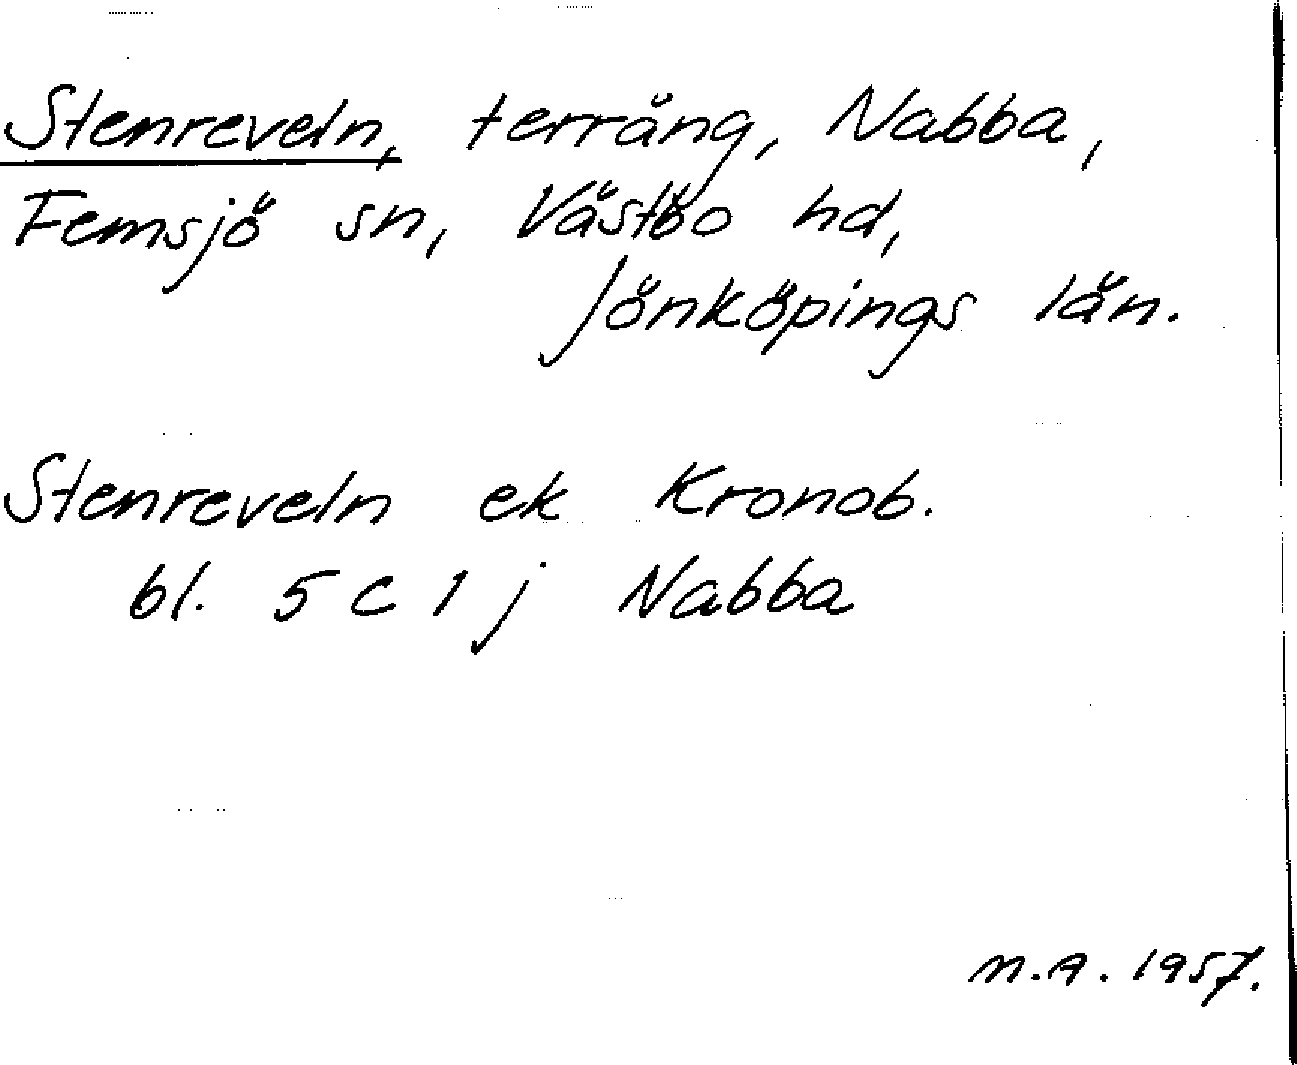 Stenreveln, terräng, Nabba,
Femsjö sn, Västbo hd,
Jönköpings län.
Stenreveln ek Kronob.
bl. 5 C 1 j Nabba
M.A. 1957.